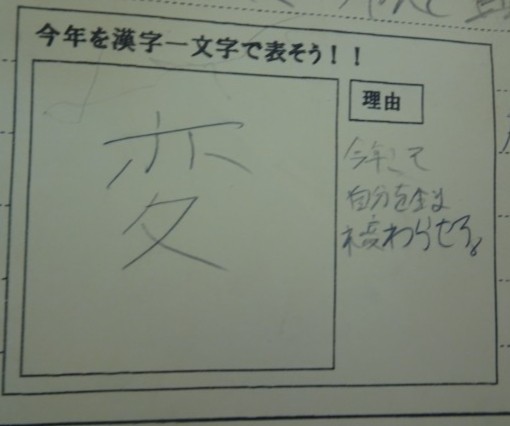 今年を漢字一文字で表そう！！
変
理由
今年こそ
自分を
変わらせる。